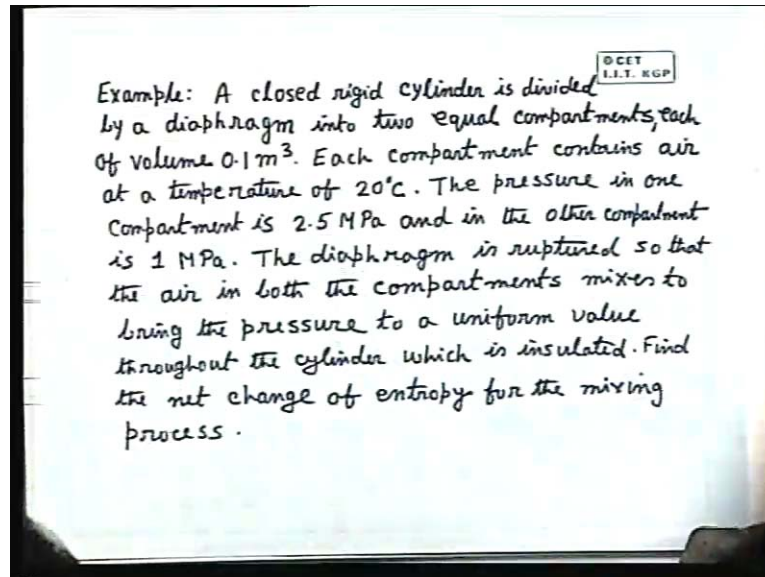 © CET
I.I.T. KGP
Example: A closed rigid cylinder is divided
by a diaphragm into two equal compartments, each
of volume 0.1 m³. Each compartment contains air
at a temperature of 20°C. The pressure in one
compartment is 2.5 MPa and in the other compartment
is 1 MPa. The diaphragm is ruptured so that
the air in both the compartments mixes to
bring the pressure to a uniform value
throughout the cylinder which is insulated. Find
the net change of entropy for the mixing
process.